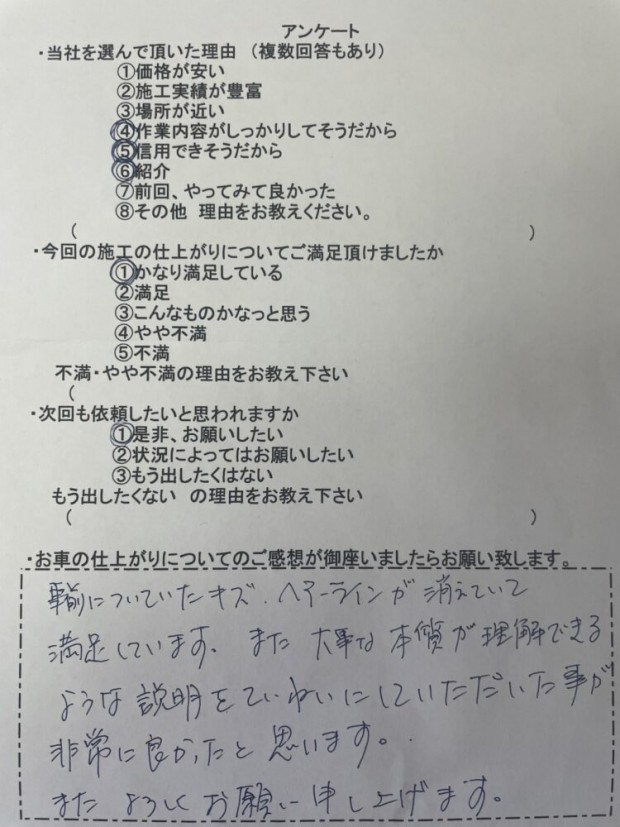 アンケート
・当社を選んで頂いた理由　（複数回答もあり）
①価格が安い
②施工実績が豊富
③場所が近い
④作業内容がしっかりしてそうだから
⑤信用できそうだから
⑥紹介
⑦前回、やってみて良かった
⑧その他　理由をお教えください。
（　　　）
・今回の施工の仕上がりについてご満足頂けましたか
①かなり満足している
②満足
③こんなものかなっと思う
④やや不満
⑤不満
不満・やや不満の理由をお教え下さい
（
・次回も依頼したいと思われますか
①是非、お願いしたい
②状況によってはお願いしたい
③もう出したくはない
もう出したくない　の理由をお教え下さい
（　　　）
・お車の仕上がりについてのご感想が御座いましたらお願い致します。
についていたキズ、ヘアーラインが消えていて
満足しています。また 大事な本質が理解できる
ような説明をていねいにしていただいた事が
非常に良かったと思います。
また よろしくお願い申し上げます。